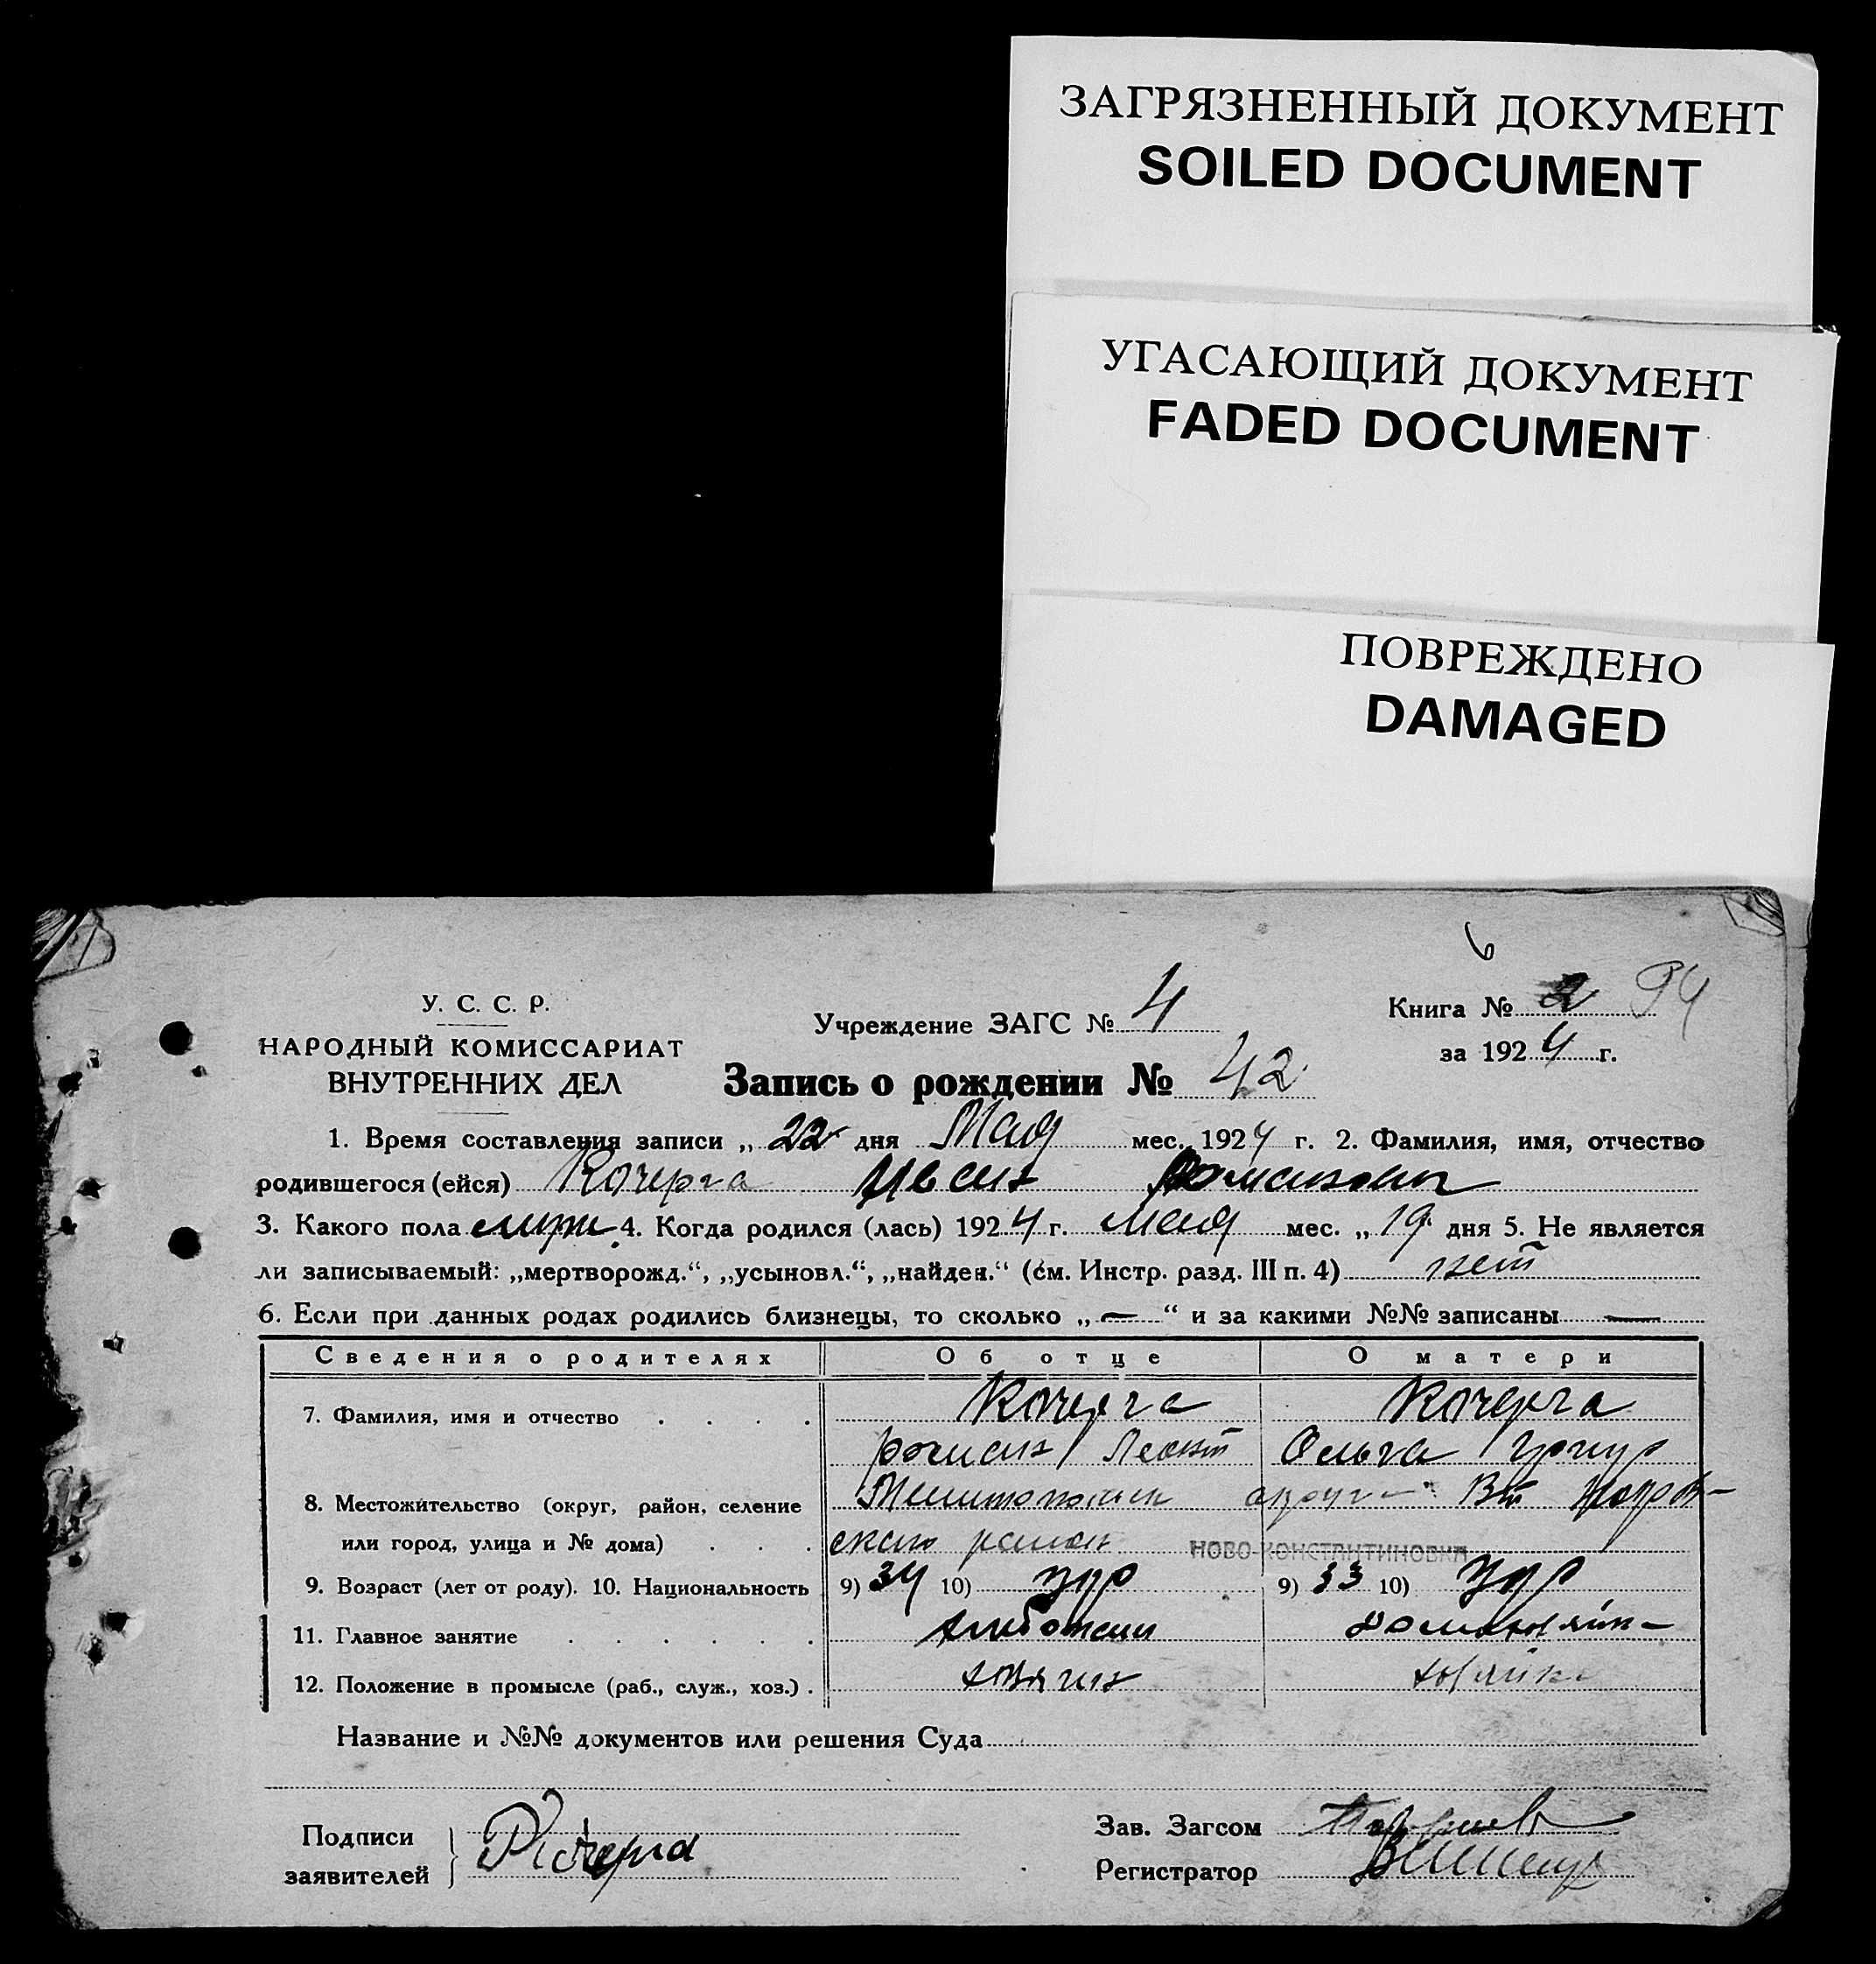 ЗАГРЯЗНЕННЫЙ ДОКУМЕНТ
SOILED DOCUMENT
УГАСАЮЩИЙ ДОКУМЕНТ
FADED DOCUMENT
ПОВРЕЖДЕНО
DAMAGED
6
У. С. С. Р.
НАРОДНЫЙ КОМИССАРИАТ
ВНУТРЕННИХ ДЕЛ
Учреждение ЗАГС № 4
Книга № 2 94
за 1924 г.
Запись о рождении № 42
1. Время составления записи „ 22 дня Мая мес. 1924 г. 2. Фамилия, имя, отчество
родившегося (ейся) Кочерга Иван Романович
3. Какого пола муж 4. Когда родился (лась) 1924 г. мая мес. „ 19 дня 5. Не является
ли записываемый: „мертворожд.“, „усыновл.“, „найден.“ (см. Инстр. разд. III п. 4) нет
6. Если при данных родах родились близнецы, то сколько „ — “ и за какими №№ записаны —
Сведения о родителях Об отце О матери
7. Фамилия, имя и отчество . . . . Кочерга Кочерга
Роман Леонт Ольга Григор
8. Местожительство (округ, район, селение Мелитопольск округ
или город, улица и № дома) . . . ского район НОВО-КОНСТАНТИНОВКА
9. Возраст (лет от роду). 10. Национальность 9) 34 10) укр 9) 33 10) укр
11. Главное занятие . . . . . . хлебопаш домохозяйк-
12. Положение в промысле (раб., служ., хоз.) . хозяин хозяйка
Название и №№ документов или решения Суда
Подписи
заявителей
РКочерга
Зав. Загсом
Регистратор